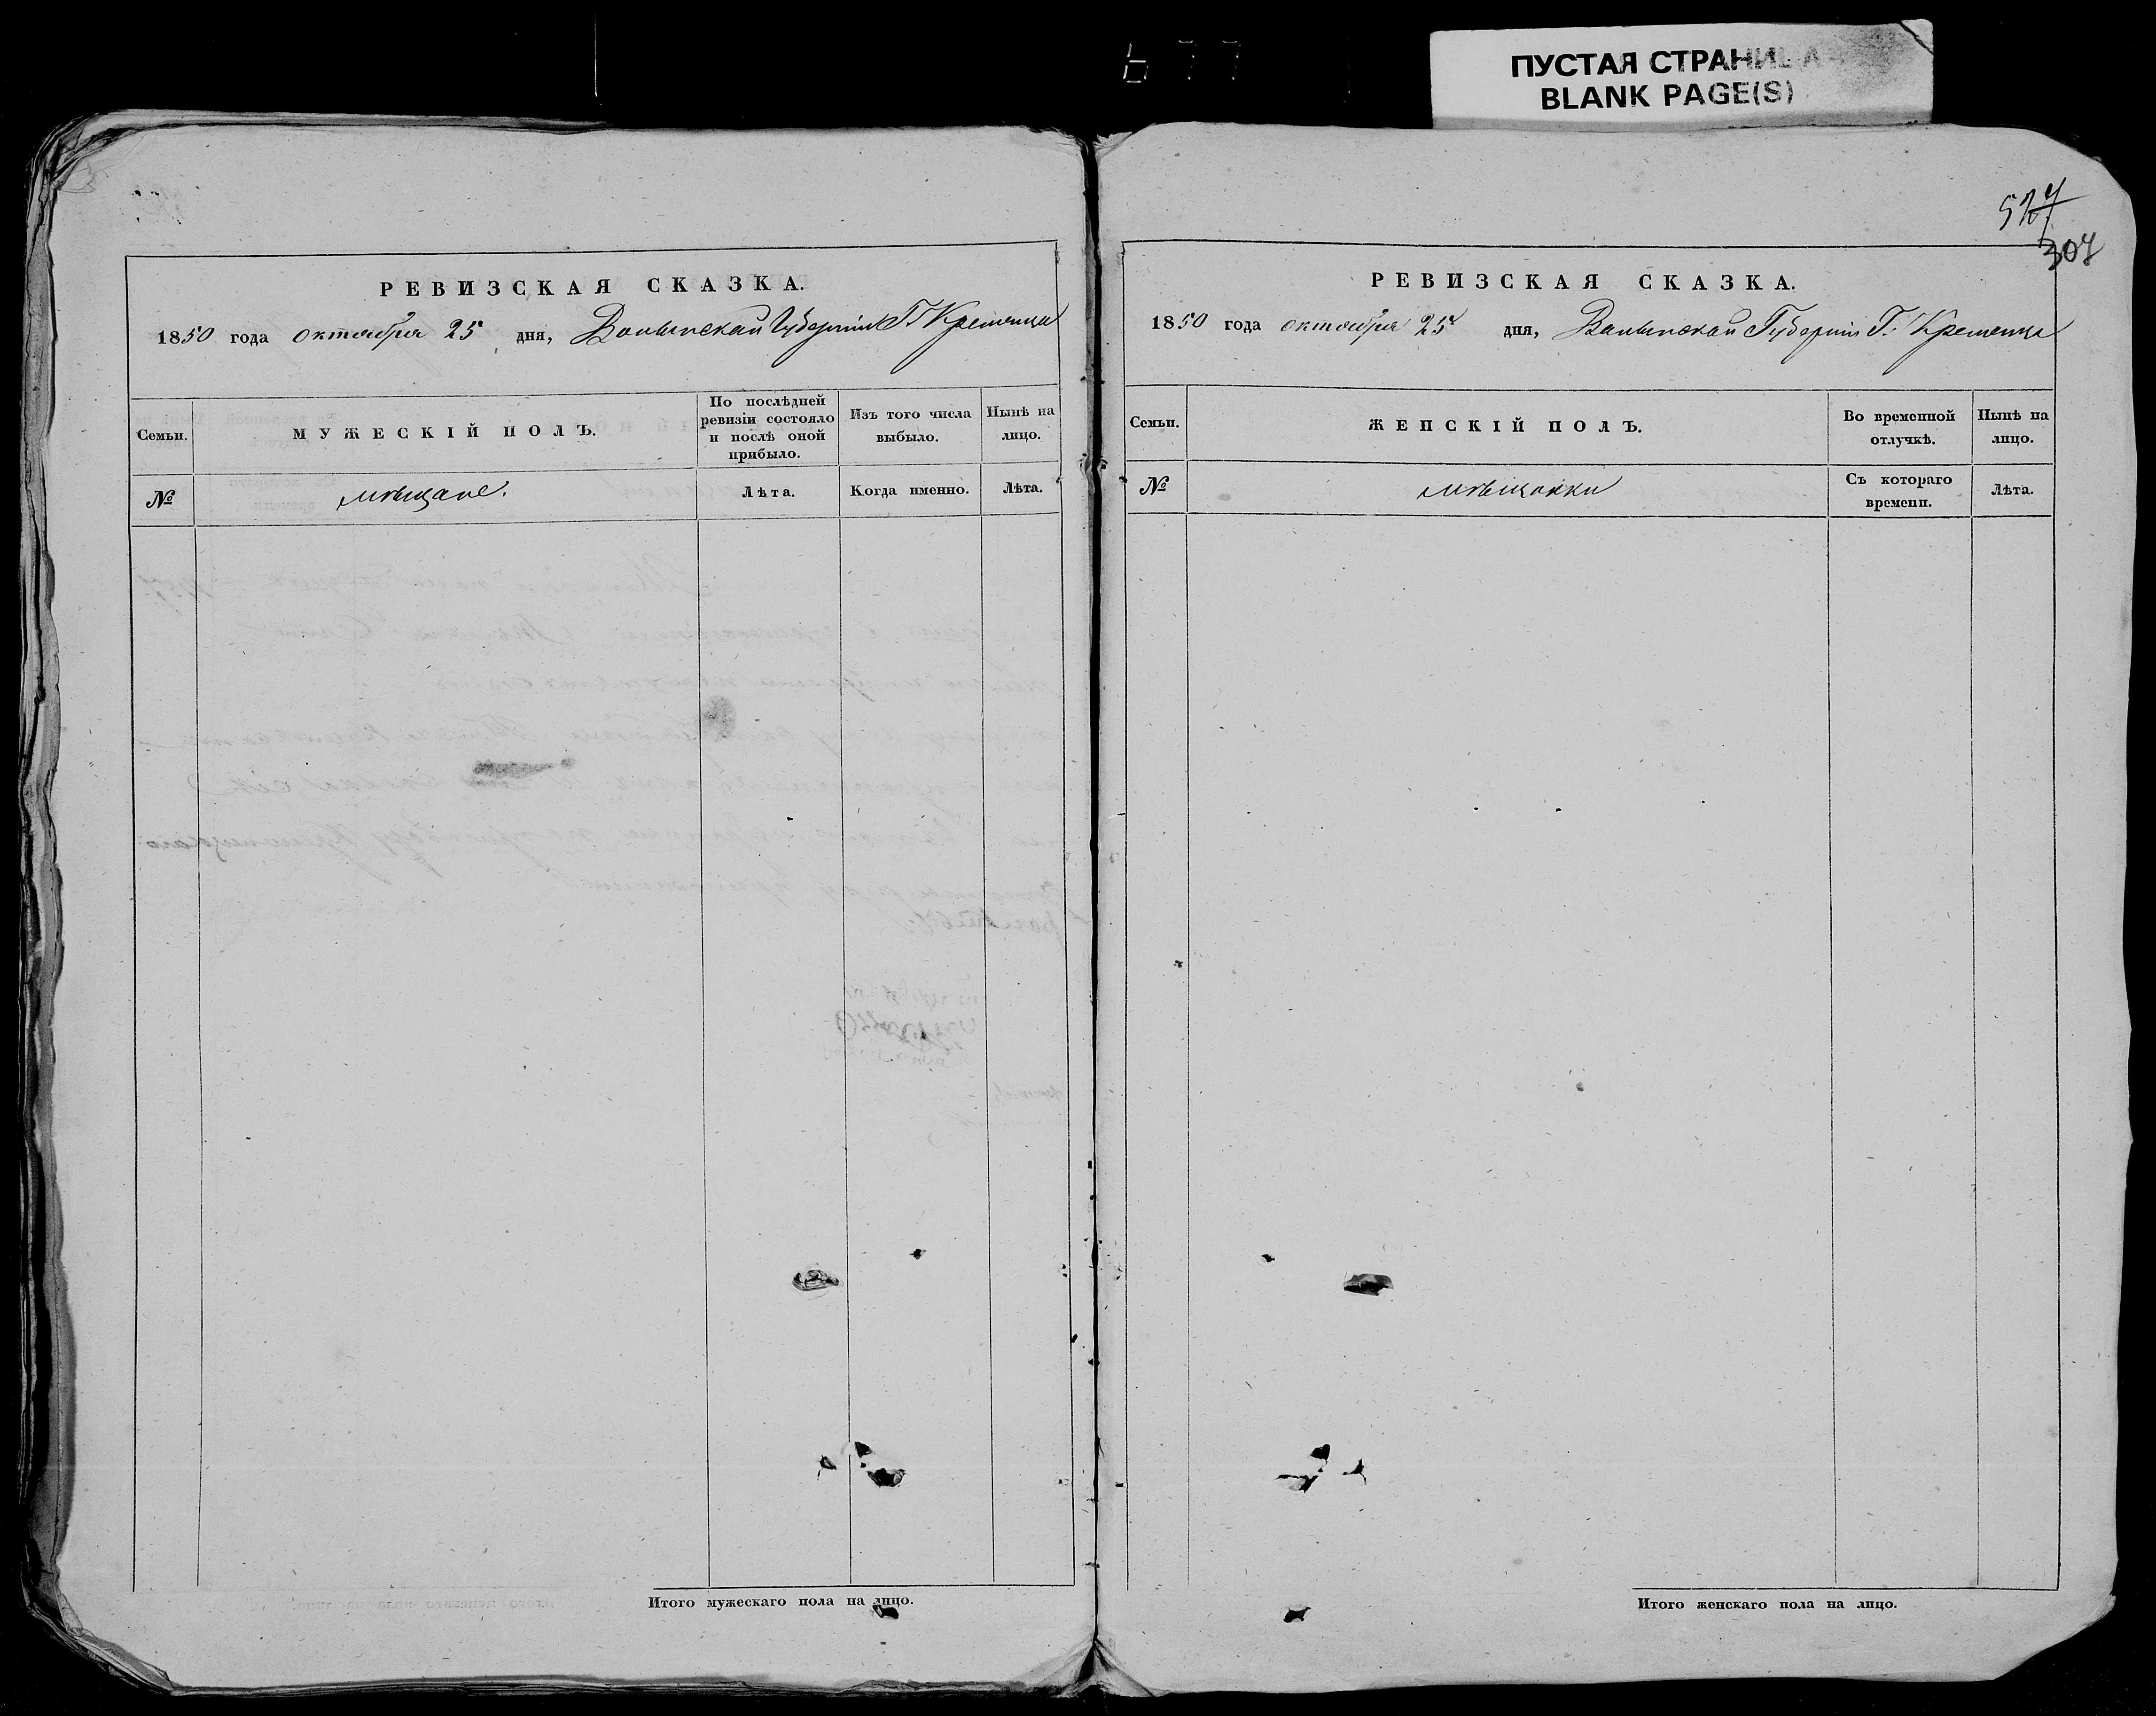 677
ПУСТАЯ СТРАНИЦА
BLANK PAGE(S)
РЕВИЗСКАЯ СКАЗКА.
1850 года октября 25 дня, Волынской Губернии Г. Кременца
Семьи.
МУЖЕСКІЙ ПОЛЪ.
По послѣдней ревизіи состояло и послѣ оной прибыло.
Изъ того числа выбыло.
Нынѣ на лицо.
№
мѣщане.
Лѣта.
Когда именно.
Лѣта.
Итого мужескаго пола на лицо.
527
307
РЕВИЗСКАЯ СКАЗКА.
1850 года октября 25 дня, Волынской Губернии Г. Кременца
Семьи.
ЖЕНСКІЙ ПОЛЪ.
Во временной отлучкѣ.
Нынѣ на лицо.
№
мѣщанки
Съ котораго времени.
Лѣта.
Итого женскаго пола на лицо.